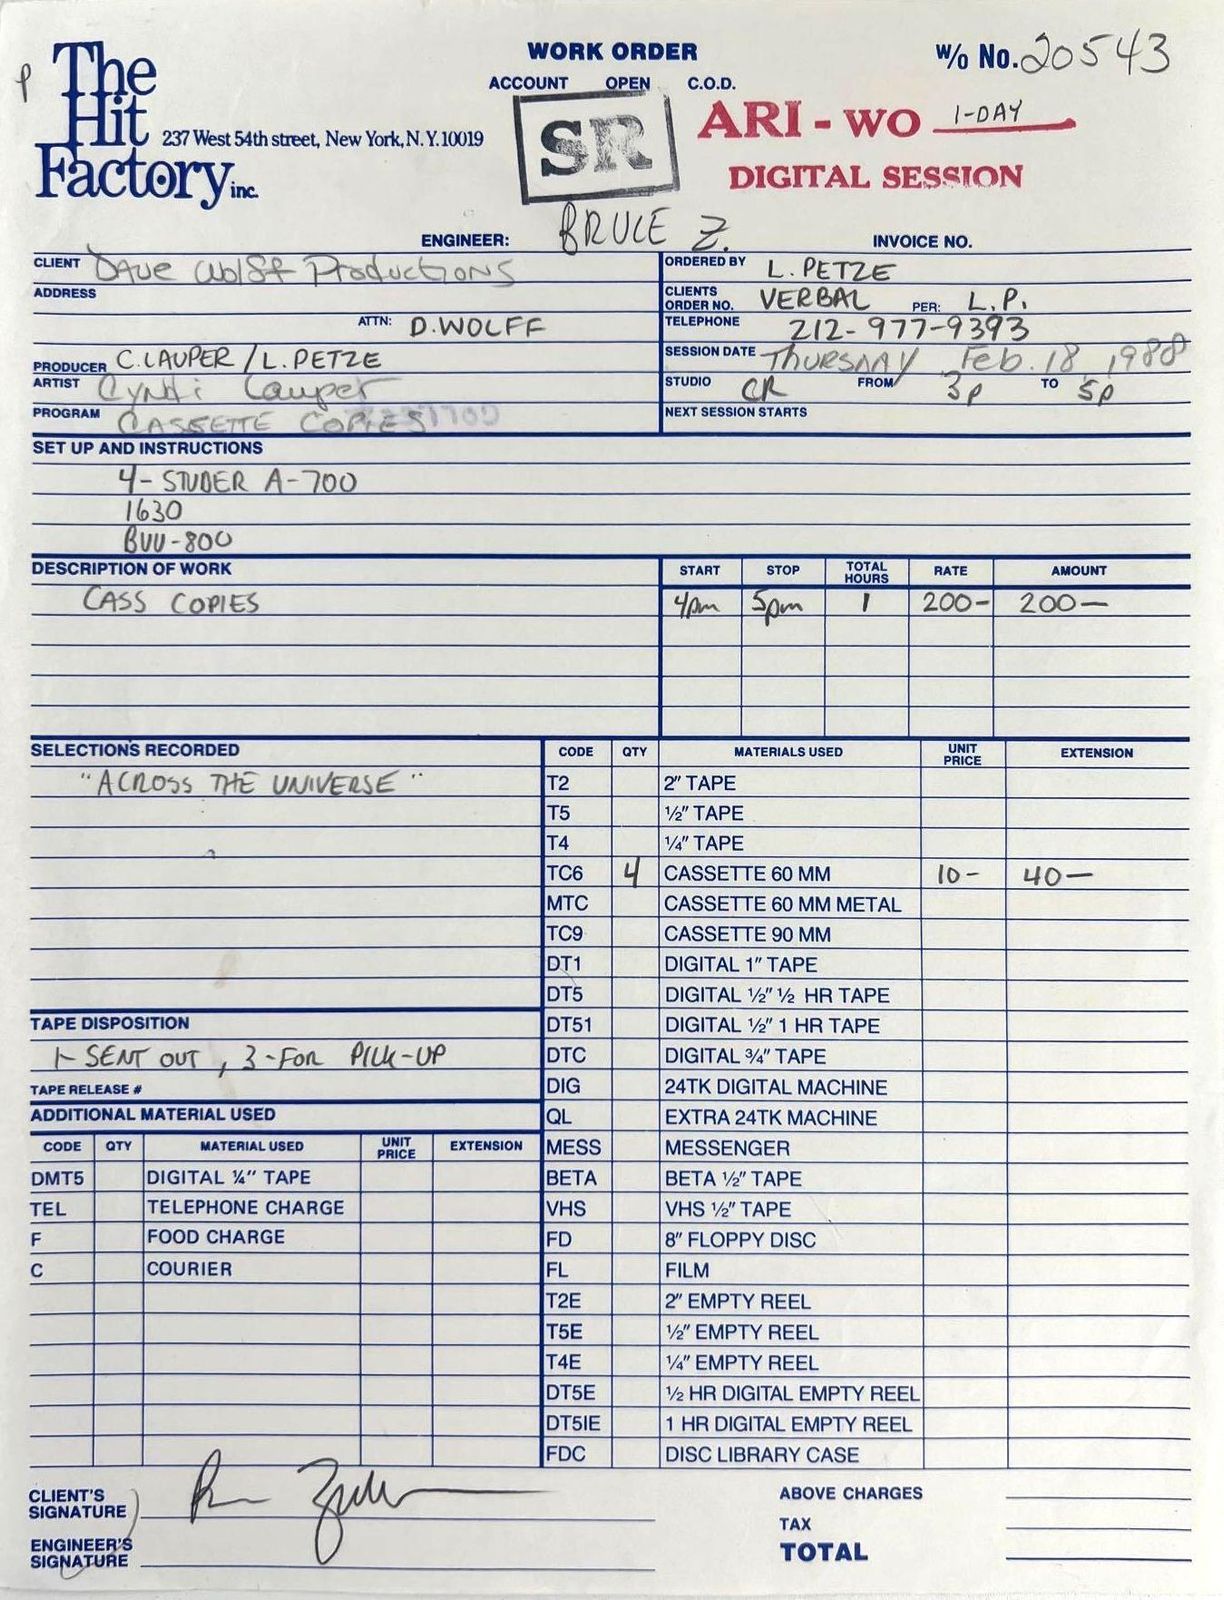 The Hit Factory inc.
237 West 54th street, New York, N.Y. 10019
WORK ORDER
ACCOUNT OPEN C.O.D.
W/O No. 20543
SR
ARI - WO 1-DAY
DIGITAL SESSION
ENGINEER: BRUCE Z.
INVOICE NO.
CLIENT Dave Wolff Productions
ORDERED BY L. PETZE
ADDRESS
CLIENTS ORDER NO. VERBAL PER: L.P.
ATTN: D. WOLFF
TELEPHONE 212-977-9393
PRODUCER C. LAUPER / L. PETZE
SESSION DATE THURSDAY Feb. 18, 1988
ARTIST Cyndi Lauper
STUDIO CR FROM 3p TO 5p
PROGRAM CASSETTE COPIES
NEXT SESSION STARTS
SET UP AND INSTRUCTIONS
4- STUDER A-700
1630
BVU-800
DESCRIPTION OF WORK START STOP TOTAL HOURS RATE AMOUNT
CASS COPIES 4pm 5pm 1 200- 200—
SELECTIONS RECORDED
"ACROSS THE UNIVERSE"
CODE QTY MATERIALS USED UNIT PRICE EXTENSION
T2 2" TAPE
T5 ½" TAPE
T4 ¼" TAPE
TC6 4 CASSETTE 60 MM 10- 40—
MTC CASSETTE 60 MM METAL
TC9 CASSETTE 90 MM
DT1 DIGITAL 1" TAPE
DT5 DIGITAL ½" ½ HR TAPE
DT51 DIGITAL ½" 1 HR TAPE
DTC DIGITAL ¾" TAPE
DIG 24TK DIGITAL MACHINE
QL EXTRA 24TK MACHINE
MESS MESSENGER
BETA BETA ½" TAPE
VHS VHS ½" TAPE
FD 8" FLOPPY DISC
FL FILM
T2E 2" EMPTY REEL
T5E ½" EMPTY REEL
T4E ¼" EMPTY REEL
DT5E ½ HR DIGITAL EMPTY REEL
DT5IE 1 HR DIGITAL EMPTY REEL
FDC DISC LIBRARY CASE
TAPE DISPOSITION
1- SENT OUT, 3-FOR PICK-UP
TAPE RELEASE #
ADDITIONAL MATERIAL USED
CODE QTY MATERIAL USED UNIT PRICE EXTENSION
DMT5 DIGITAL ¼" TAPE
TEL TELEPHONE CHARGE
F FOOD CHARGE
C COURIER
CLIENT'S SIGNATURE
ENGINEER'S SIGNATURE
ABOVE CHARGES
TAX
TOTAL